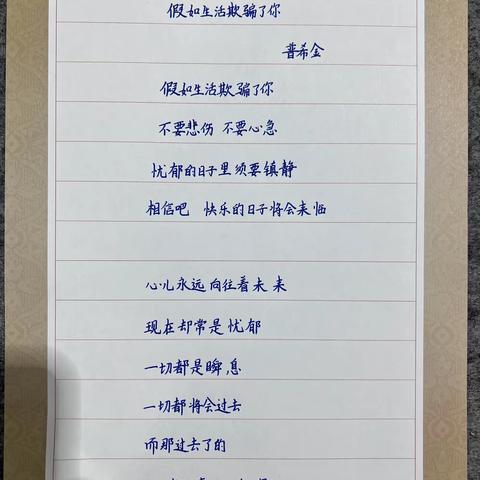 假如生活欺骗了你
普希金
假如生活欺骗了你
不要悲伤 不要心急
忧郁的日子里须要镇静
相信吧 快乐的日子将会来临
心儿永远向往着未来
现在却常是忧郁
一切都是瞬息
一切都将会过去
而那过去了的